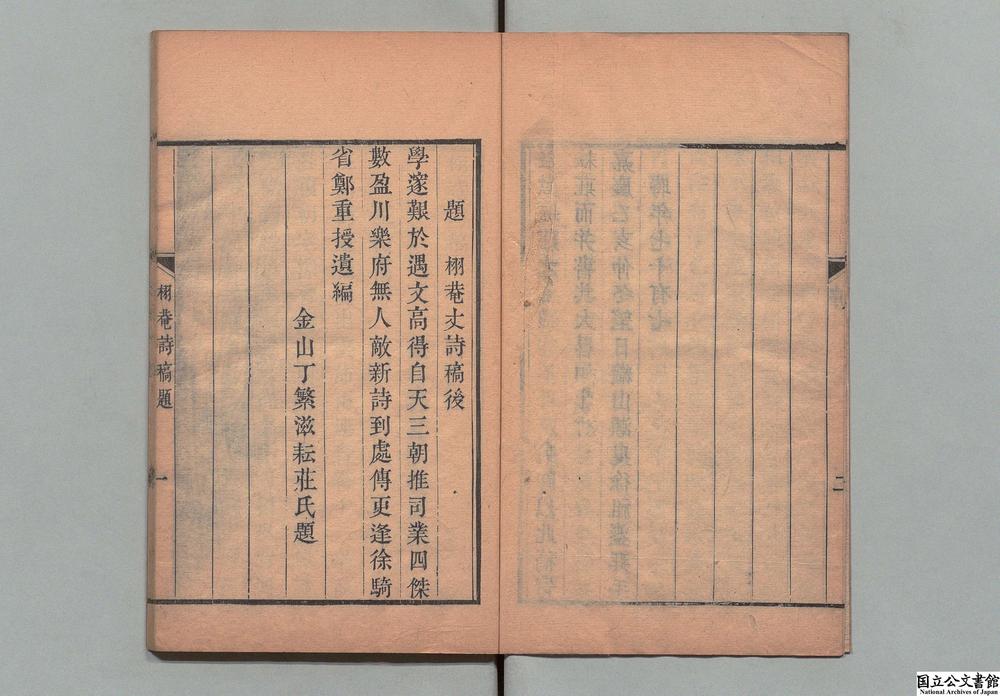 題　栩菴丈詩稿後
學邃艱於遇文高得自天三朝推司業四傑
數盈川樂府無人敵新詩到處傳更逢徐騎
省鄭重授遺編
金山丁繁滋耘莊氏題
栩菴詩稿題
一
二
国立公文書館
National Archives of Japan